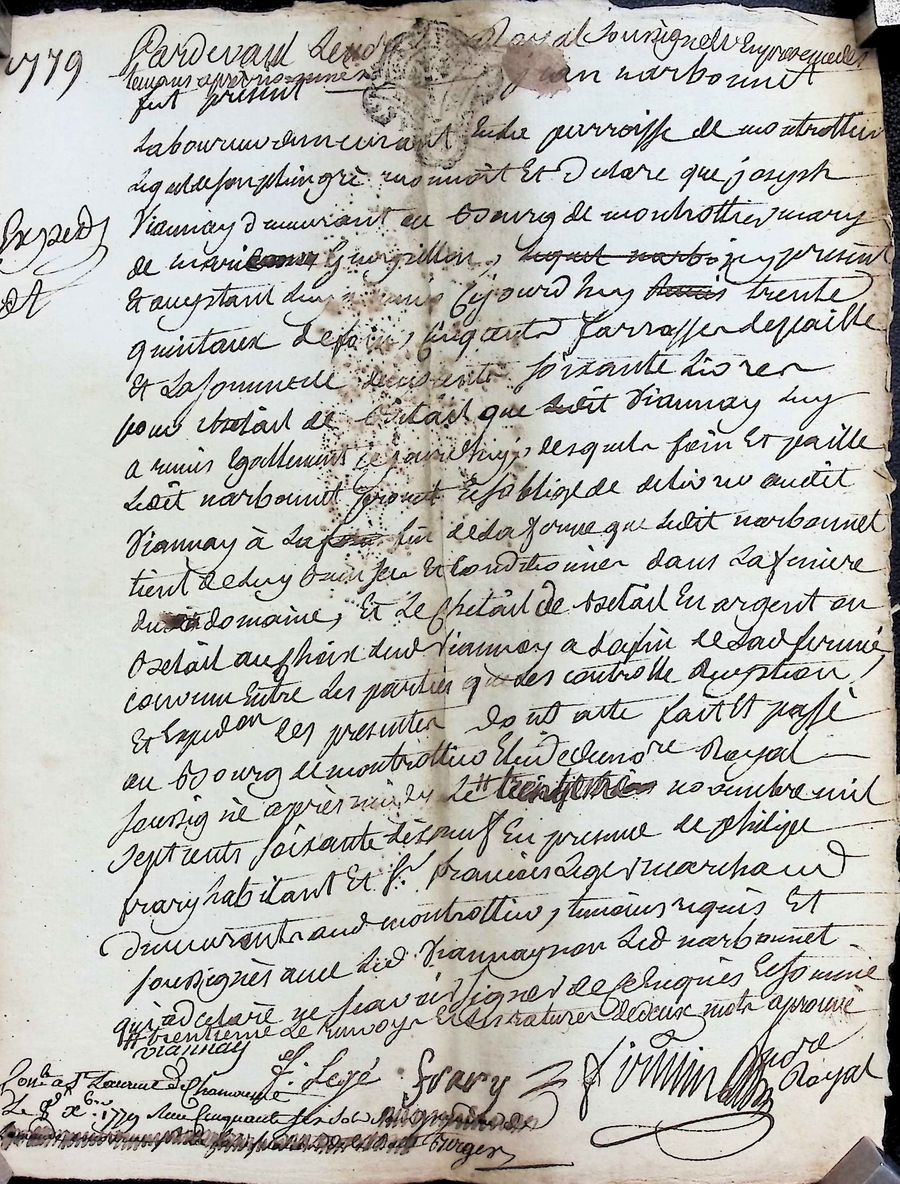 1779
Pardevant Le no.re Royal soussigné Et En presence des
temoins apres nommés
fut present Jean narbonnet
Laboureur demeurant En la parroisse de montrottier
Lequel de son plein gré reconnoit Et Declare que joseph
Viannay demeurant au Bourg de montrottier mary
de marie Guerpillon, lequel narbo icy present
Expedi
Et acceptant luy a remis cejourd'huy trente
quinteaux de foin, cinquante farrasses de paille
Et La somme de deux cents soixante Livres
pour de Bétail que Ledit Viannay luy
a remis Egallement cejourd'huy, desquels foin Et paille
Ledit narbonnet promet Et s'oblige de delivrer audit
Viannay à La fin de La ferme que Ledit narbonnet
tient de luy Et Conditionner dans La feniere
dudit domaine, Et Le de Bétail En argent ou
Bétail au Choix dud Viannay a La fin de Lad ferme
convenu Entre Les parties que Les controlle
Et Expedon des presentes dont acte fait Et passé
au Bourg de montrottier Etude de no.re Royal
soussigné après midy Le # novembre mil
sept cents soixante dix neuf En presence de philipe
frary habitant Et S.r francois Legé marchand
demeurents aud montrottier, temoins requis Et
soussignés avec Led Viannay non Led narbonnet
qui a declaré ne scavoir signer de ce Enquis Et sommé
# trentieme Le renvoy Et La rature de deux mots aprouvé
Viannay
f. Legé frary no.re Royal
Con.le a S.t Laurent de Chamousset
Le X.bre 1779 Recu Cinquante six sols
Berger